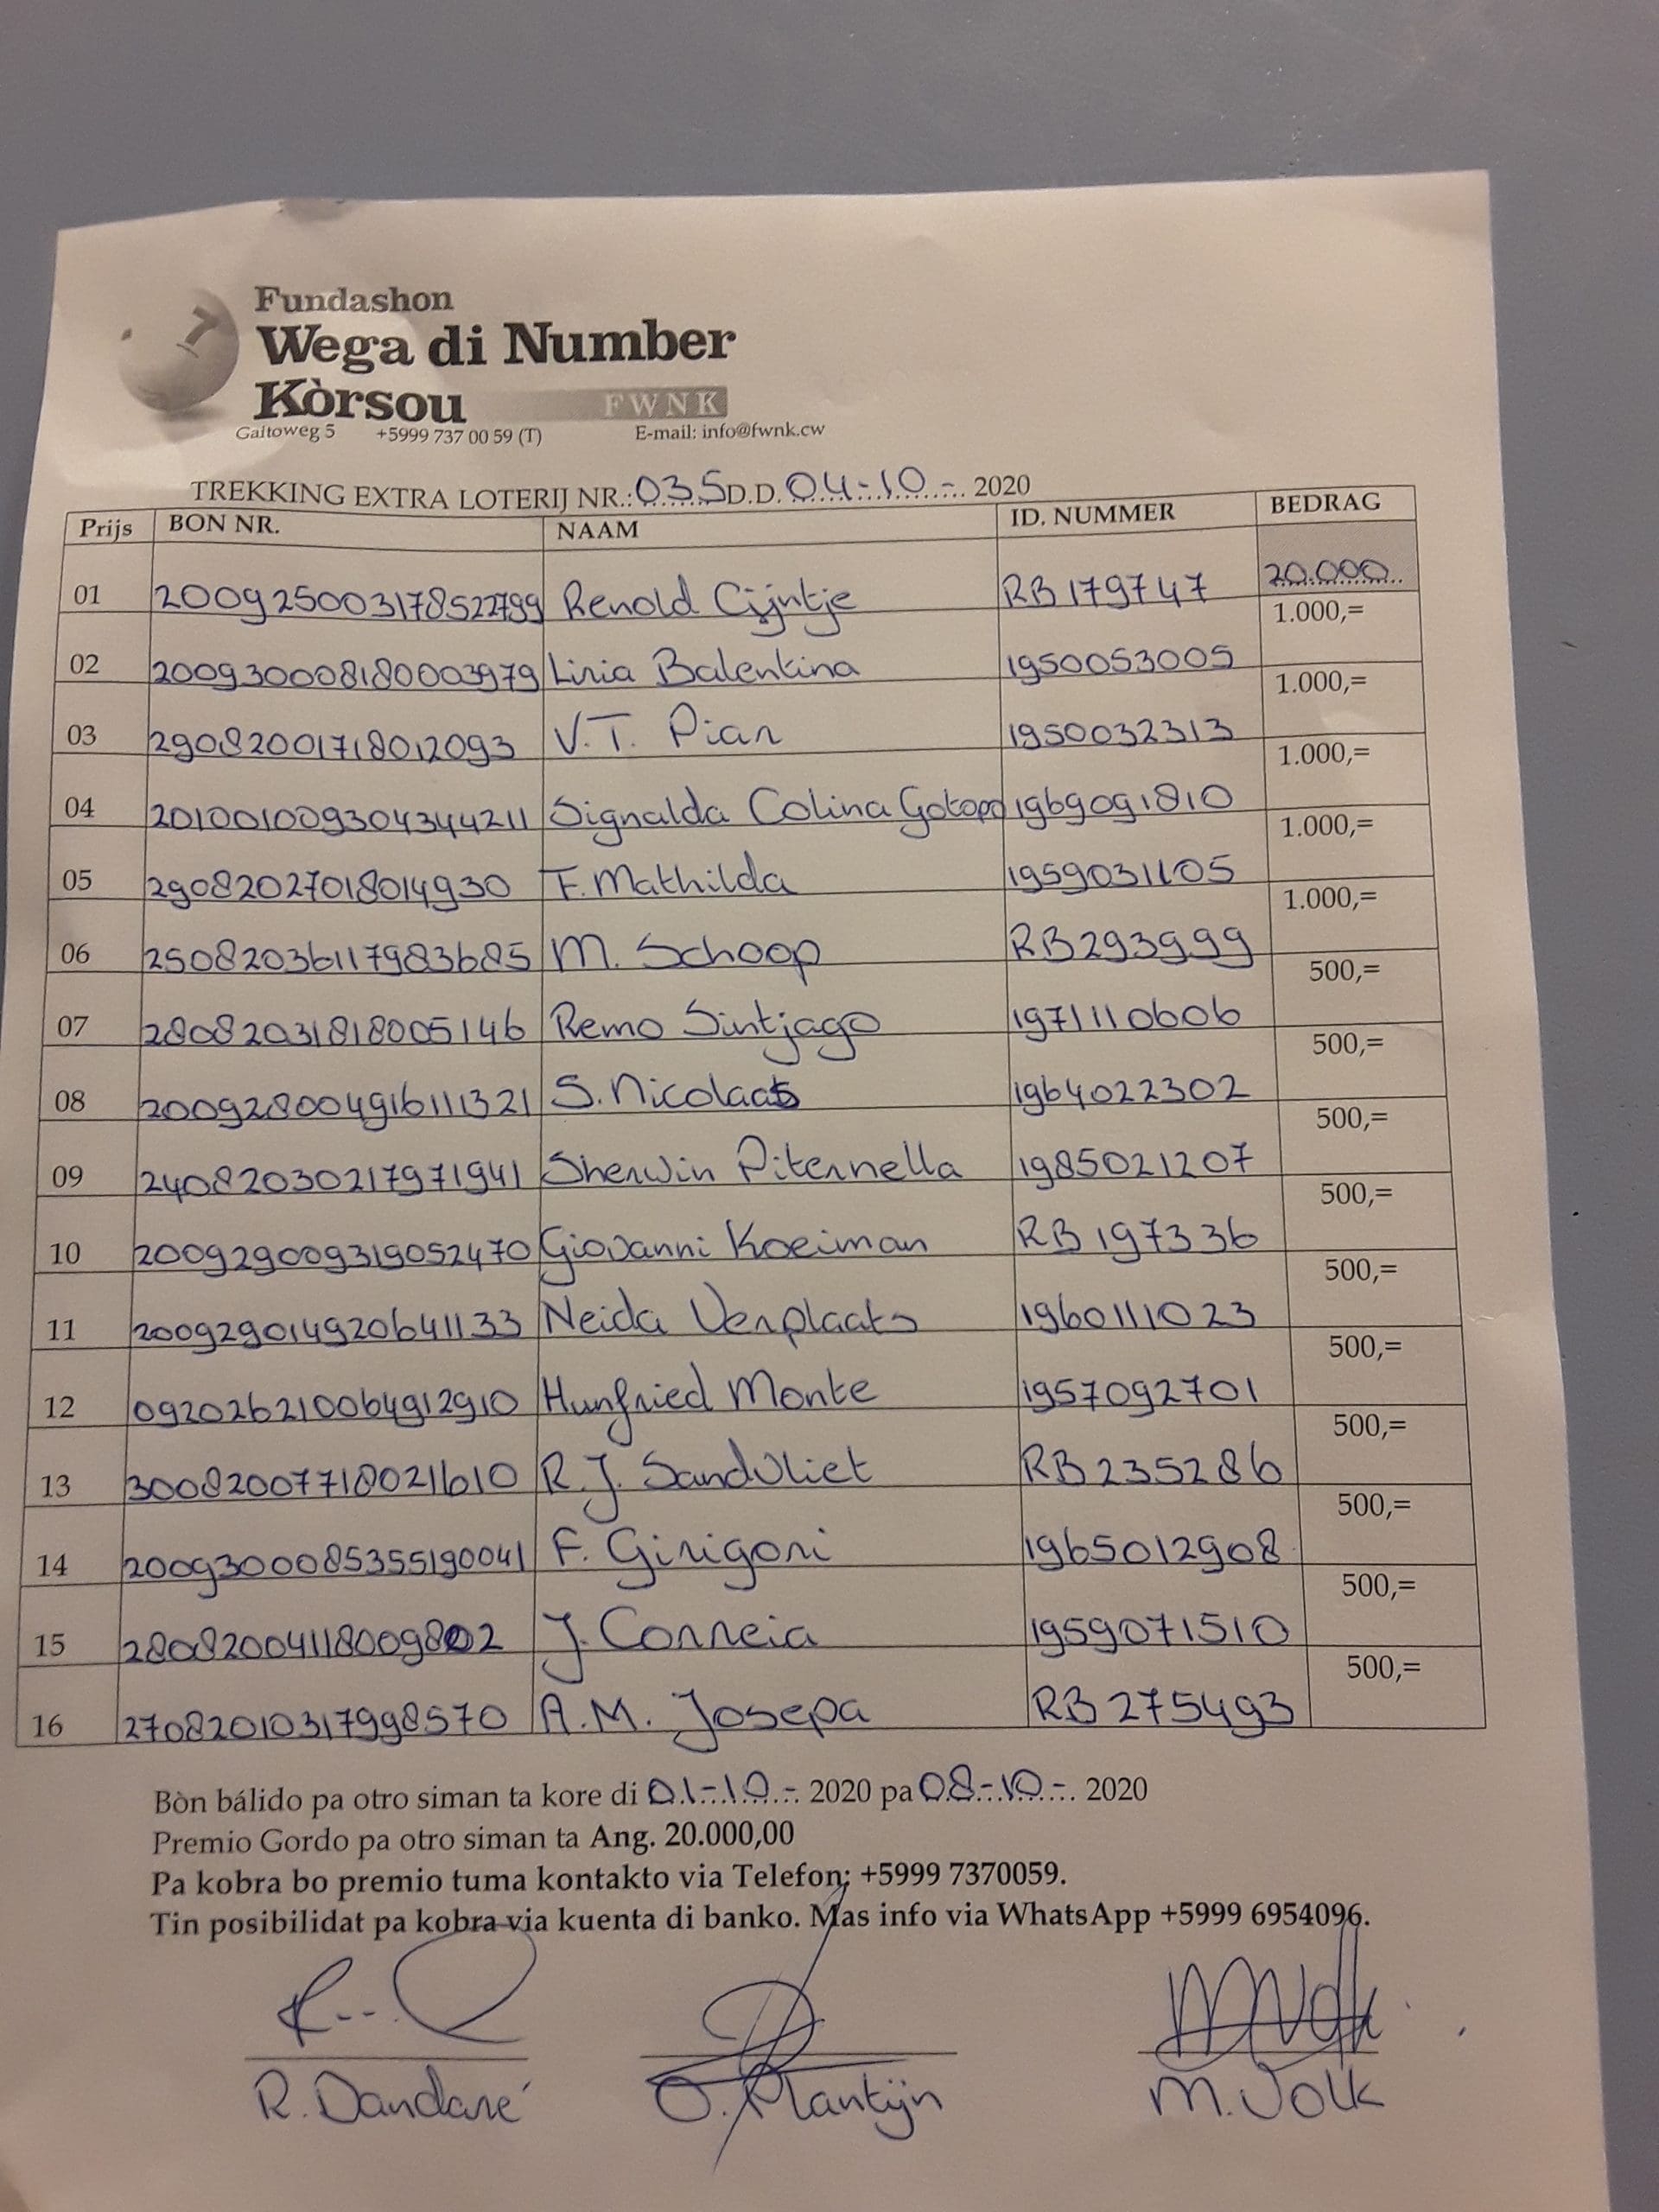 Fundashon
Wega di Number
Kòrsou FWNK
Gaitoweg 5 +5999 737 00 59 (T) E-mail: info@fwnk.cw
TREKKING EXTRA LOTERIJ NR.: 035 D.D. 04-10-2020
Prijs BON NR. NAAM ID. NUMMER BEDRAG
01 20092500317852799 Renold Cijntje RB179747 20.000
02 200930008180003979 Liria Balentina 1950053005 1.000,=
03 29082001718012093 V.T. Pian 1950032313 1.000,=
04 201001009304344211 Signalda Colina Gotopo 1969091810 1.000,=
05 29082027018014930 F. Mathilda 1959031105 1.000,=
06 25082036117983685 M. Schoop RB293999 1.000,=
07 28082031818005146 Remo Sintjago 1971110606 500,=
08 200928004916111321 S. Nicolaas 1964022302 500,=
09 24082030217971941 Sherwin Piternella 1985021207 500,=
10 200929009319052470 Giovanni Koeiman RB197336 500,=
11 200929014920641133 Neida Verplaats 1960111023 500,=
12 092026210064912910 Hunfried Monte 1957092701 500,=
13 30082007718021610 R.J. Sandvliet RB235286 500,=
14 2009300085355190041 F. Girigori 1965012908 500,=
15 28082004118009802 J. Correia 1959071510 500,=
16 27082010317998570 A.M. Josepa RB275493 500,=
Bòn bálido pa otro siman ta kore di 01-10-2020 pa 08-10-2020
Premio Gordo pa otro siman ta Ang. 20.000,00
Pa kobra bo premio tuma kontakto via Telefon; +5999 7370059.
Tin posibilidat pa kobra via kuenta di banko. Mas info via WhatsApp +5999 6954096.
R. Dandaré O. Plantijn M. Volk